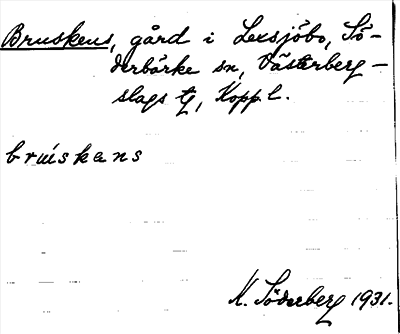 Bruskens, gård i Lexsjöbo, Sö-
derbärke sn, Västerberg-
slags tg, Kopp.l.
bruskans
K. Söderberg 1931.